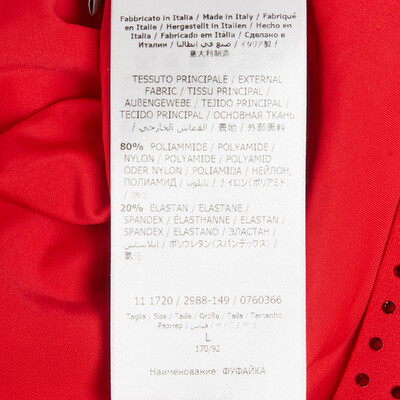 Fabbricato in Italia / Made in Italy / Fabriqué
en Italie / Hergestellt in Italien / Hecho en
Italia / Fabricado em Itália / Сделано в
Италии / صنع في إيطاليا / イタリア製 /
意大利制造
TESSUTO PRINCIPALE / EXTERNAL
FABRIC / TISSU PRINCIPAL /
AUßENGEWEBE / TEJIDO PRINCIPAL /
TECIDO PRINCIPAL / ОСНОВНАЯ ТКАНЬ
/ القماش الخارجي / 表地 / 外部面料
80% POLIAMMIDE / POLYAMIDE /
NYLON / POLYAMIDE / POLYAMID
ODER NYLON / POLIAMIDA / НЕЙЛОН,
ПОЛИАМИД / نايلون / ナイロン(ポリアミド)
/
20% ELASTAN / ELASTANE /
SPANDEX / ÉLASTHANNE / ELASTAN /
SPANDEX / ELASTANO / ЭЛАСТАН /
إيلاستين / ポリウレタン(スパンデックス) /
11 1720 / 2988-149 / 0760366
Taglia / Size / Taille / Größe / Talla / Tamanho /
Размер / قياس / サイズ /
L
170/92
Наименование: ФУФАЙКА